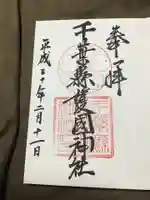 奉拝
千葉縣護國神社
平成三十年二月十一日